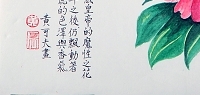 皇帝的魔性之花
年之後仍飄動著
的色澤與香氣
黃可大畫